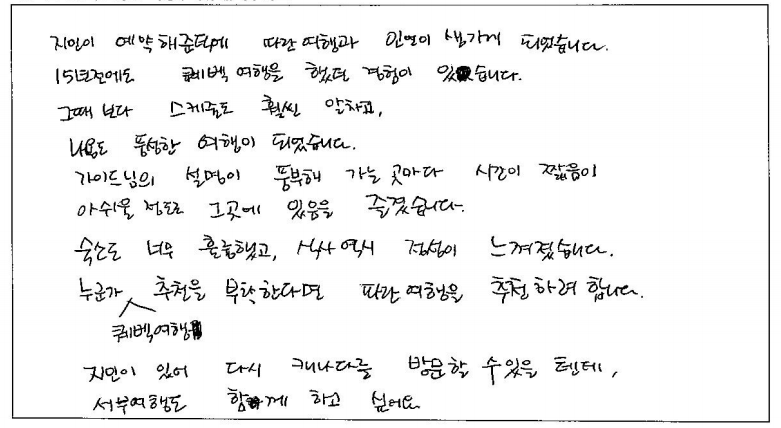 지인이 예약해준덕에 파란여행과 인연이 생기게 되었습니다.
15년전에도 퀘벡여행을 했던 경험이 있습니다.
그때보다 스케줄도 훨씬 알차고,
내용도 풍성한 여행이 되었습니다.
가이드님의 설명이 풍부해 가는 곳마다 시간이 짧음이
아쉬울 정도로 그곳에 있음을 즐겼습니다.
숙소도 너무 훌륭했고, 식사 역시 정성이 느껴졌습니다.
누군가 추천을 부탁한다면 파란여행을 추천하려 합니다.
퀘벡여행
지인이 있어 다시 캐나다를 방문할 수 있을 텐데,
서부여행도 함께 하고 싶어요